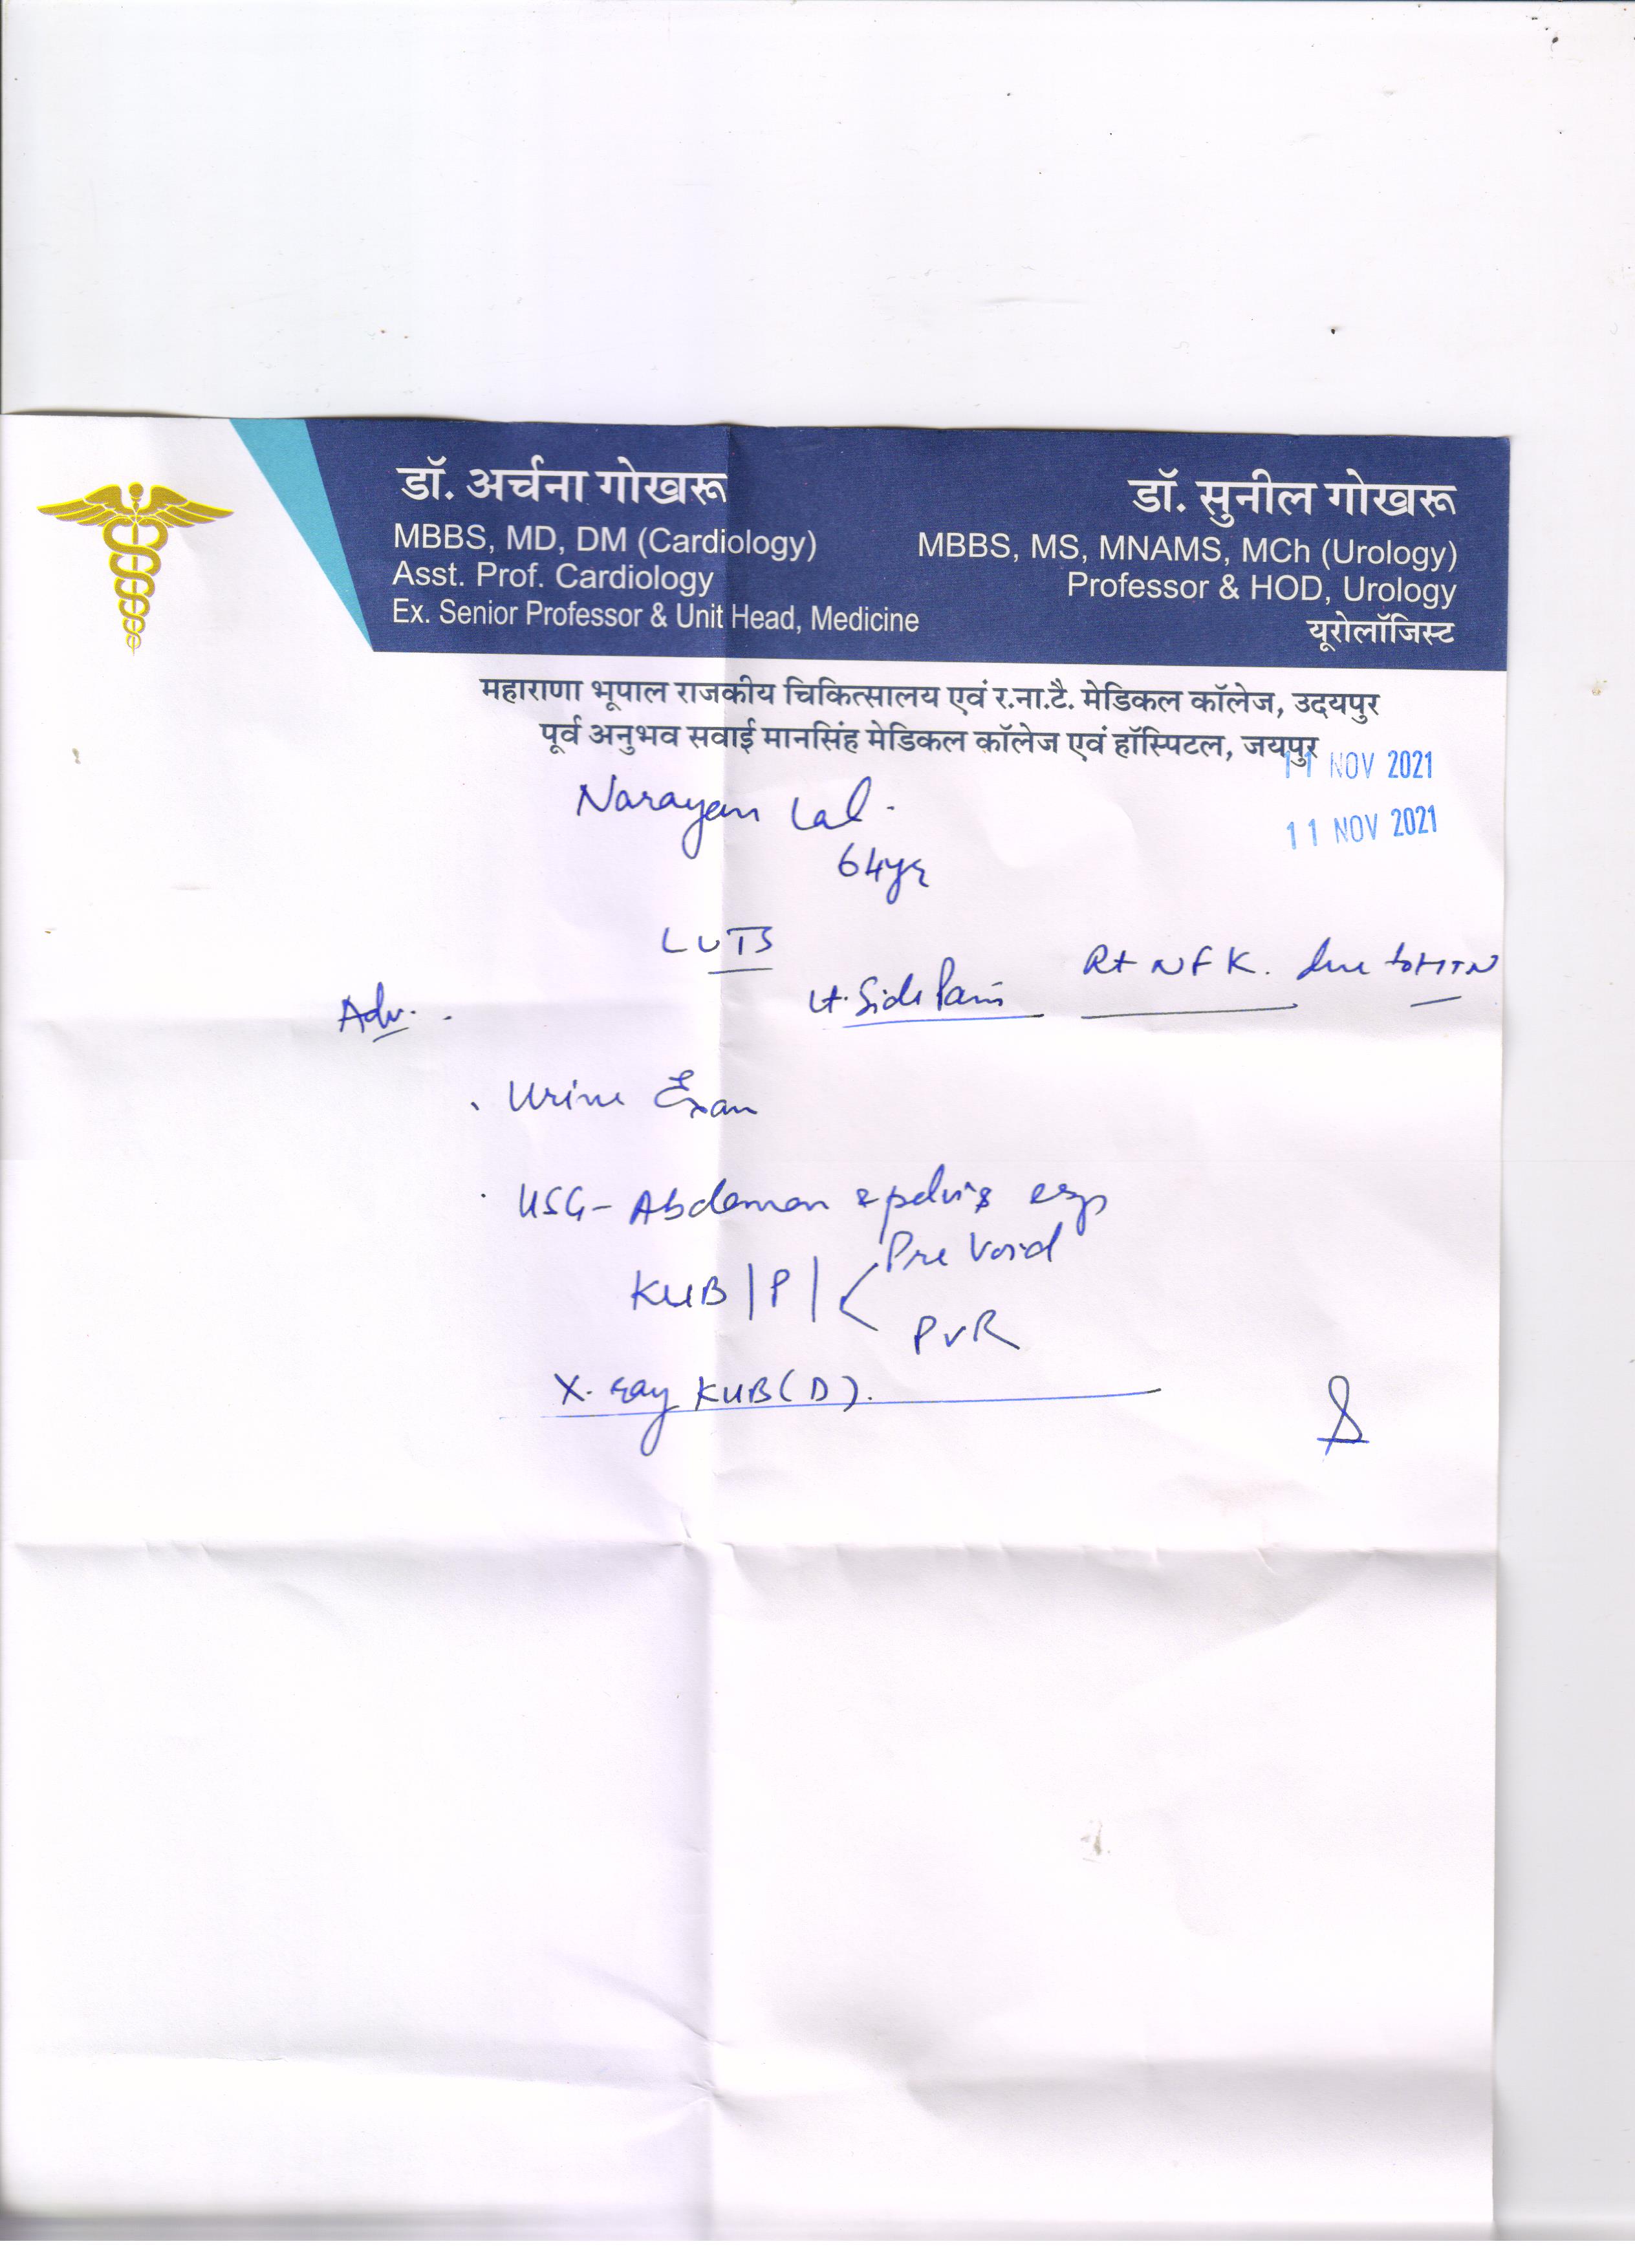 डॉ. अर्चना गोखरू
MBBS, MD, DM (Cardiology)
Asst. Prof. Cardiology
Ex. Senior Professor & Unit Head, Medicine
डॉ. सुनील गोखरू
MBBS, MS, MNAMS, MCh (Urology)
Professor & HOD, Urology
यूरोलॉजिस्ट
महाराणा भूपाल राजकीय चिकित्सालय एवं र.ना.टै. मेडिकल कॉलेज, उदयपुर
पूर्व अनुभव सवाई मानसिंह मेडिकल कॉलेज एवं हॉस्पिटल, जयपुर
11 NOV 2021
11 NOV 2021
Narayan Lal.
64yr
LUTS
Lt. Side Pain
Rt NFK. due to HTN
Adv.
. Urine Exam
. USG- Abdomen & pelvis esp
KUB | P | < Pre Void
PVR
X-ray KUB (D).